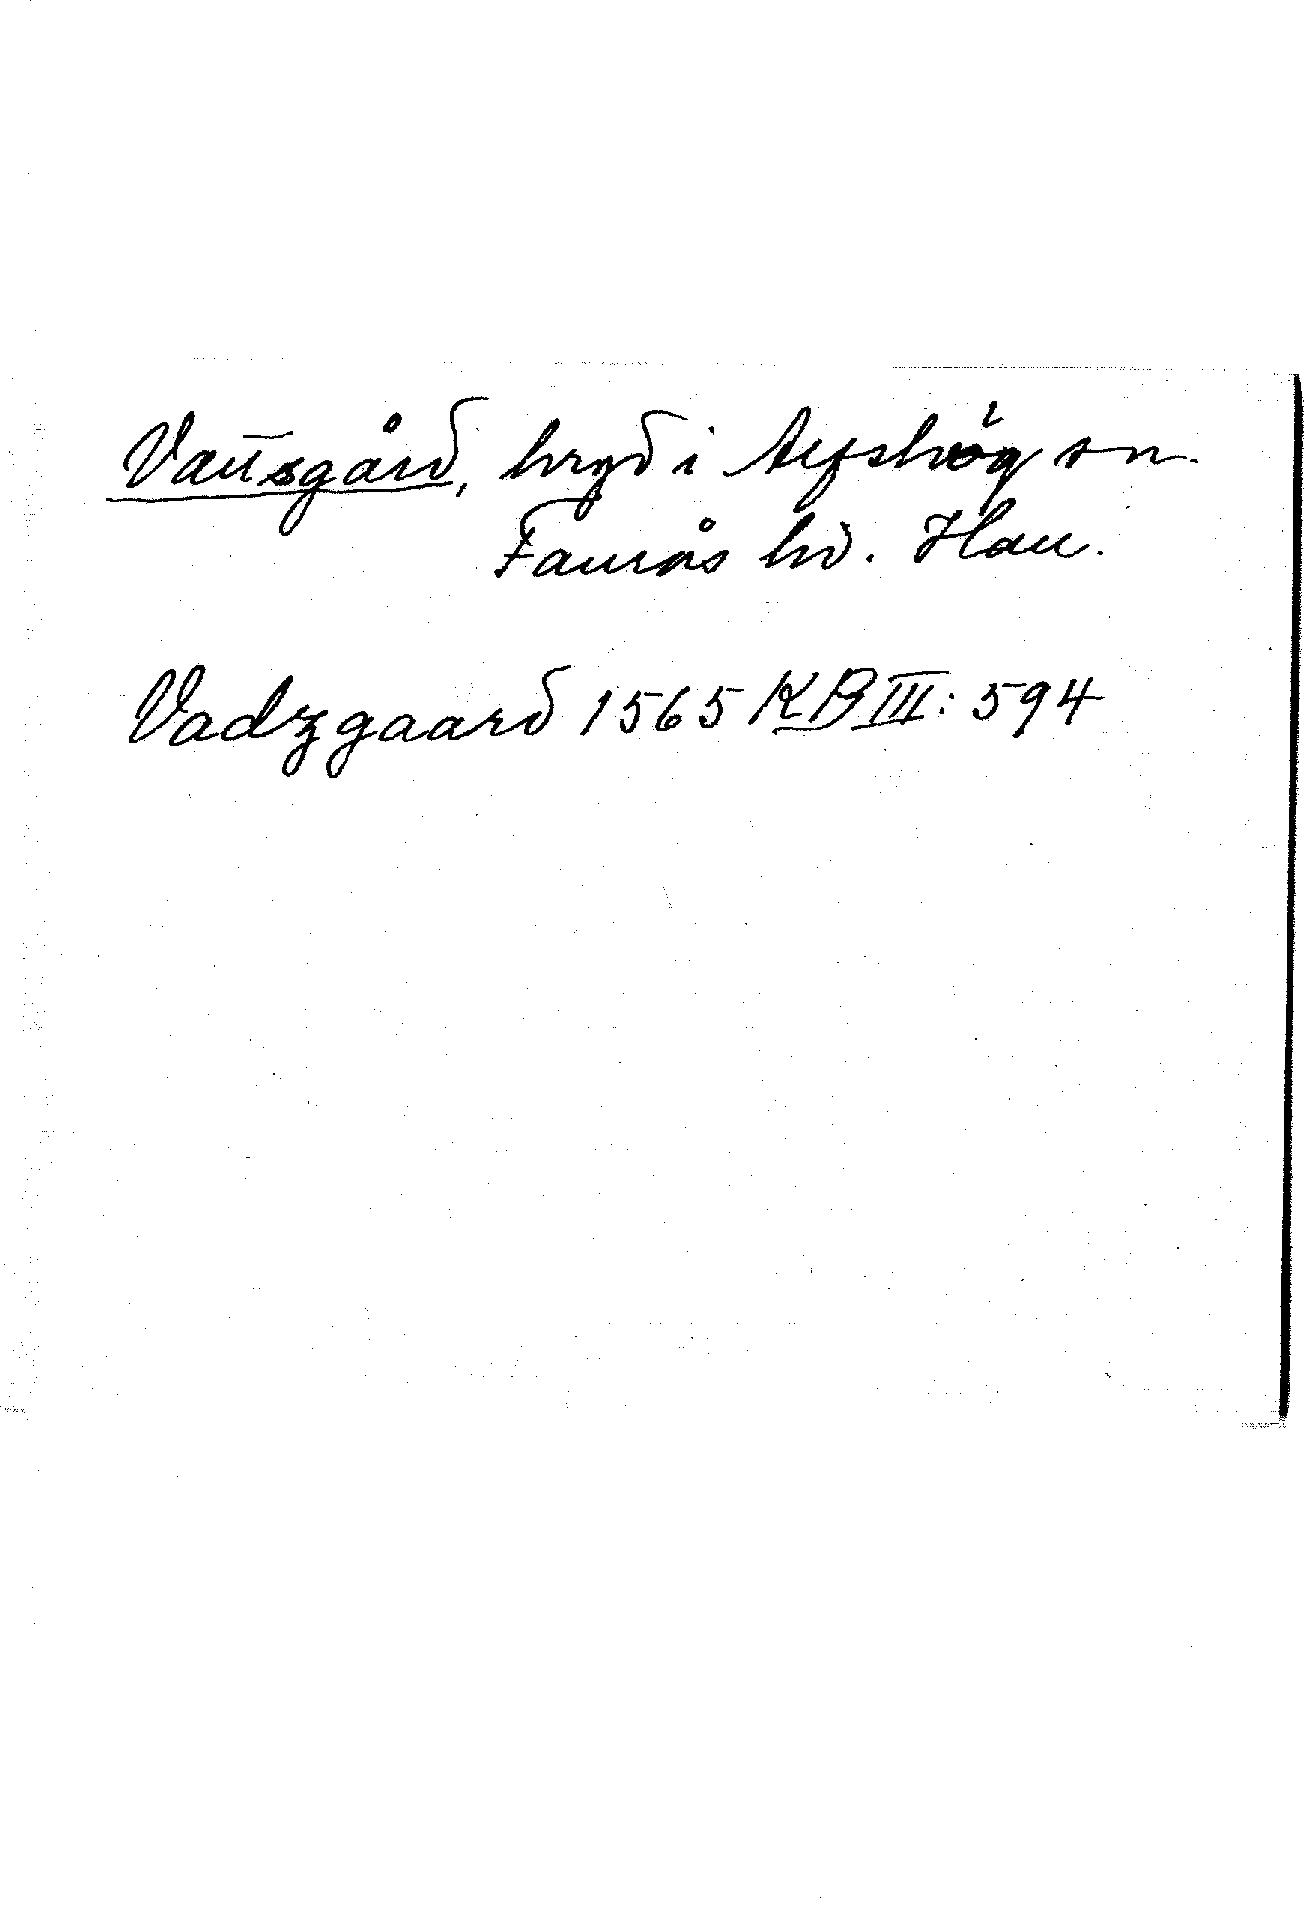 Vannsgård, hrgd i Alfshög sn.
Faurås hd. Hall.
Vadzgaard 1565 KB III: 594